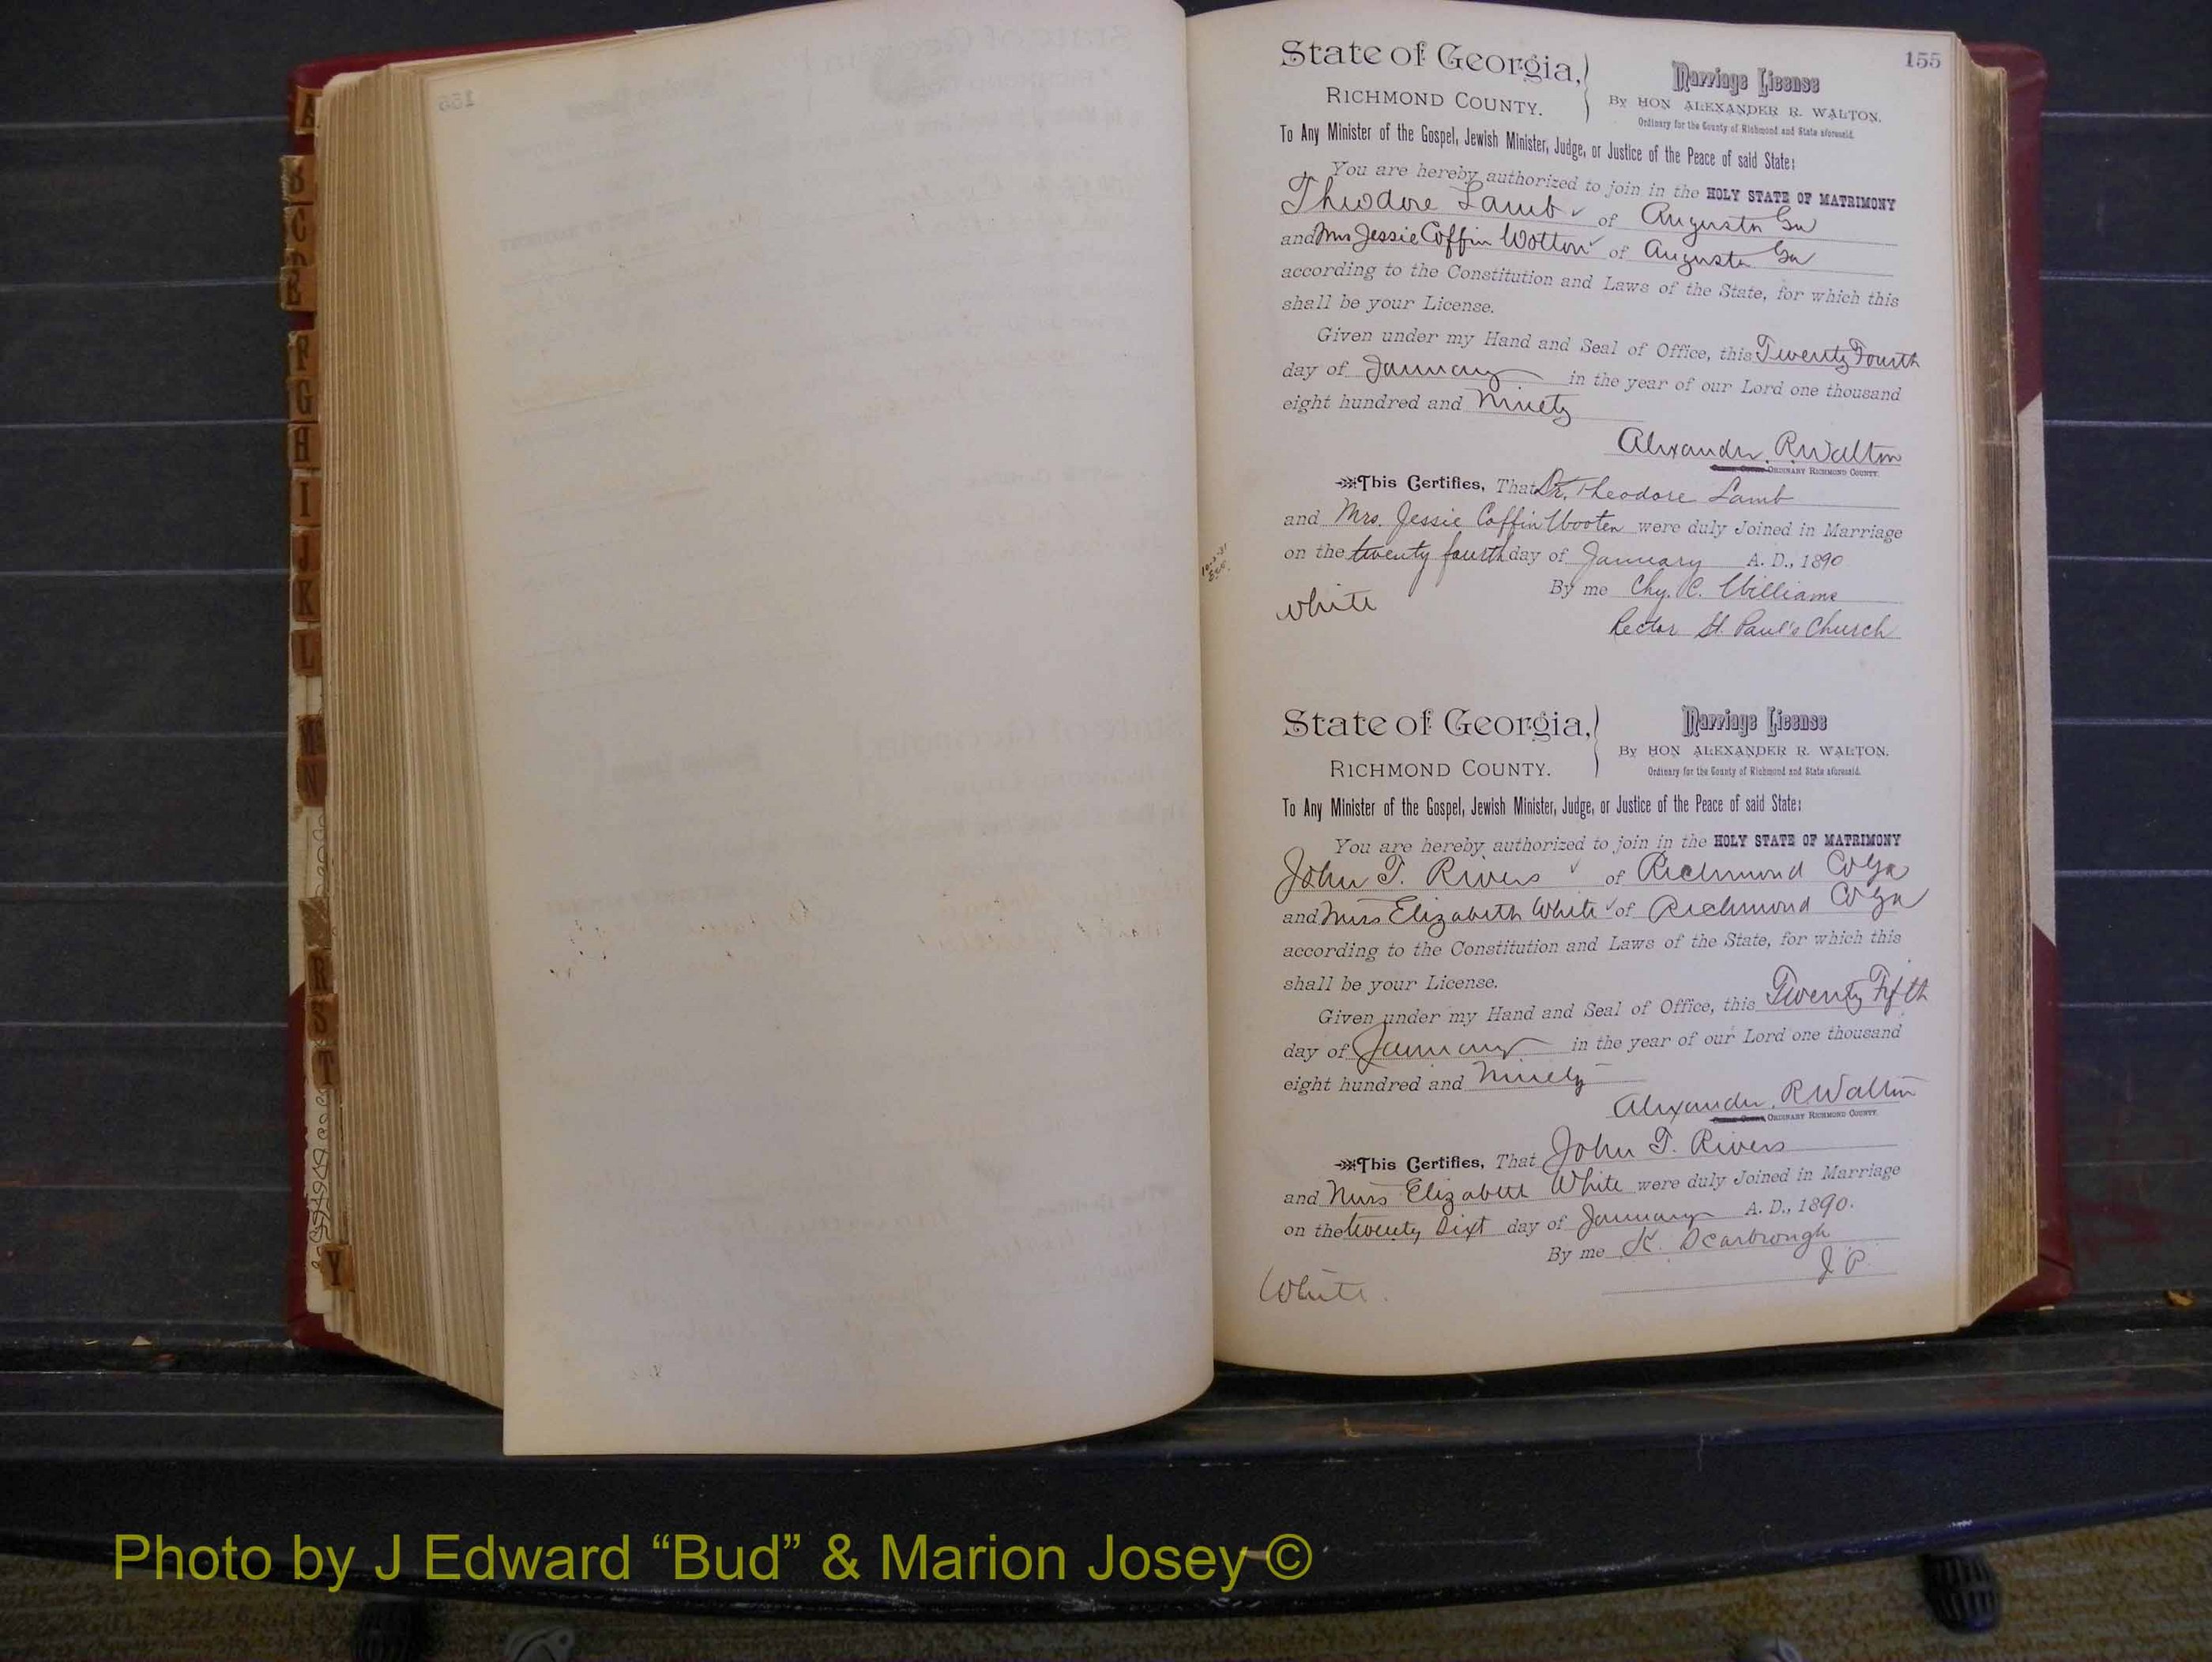 155
State of Georgia,
RICHMOND COUNTY.
Marriage License
By HON ALEXANDER R. WALTON,
Ordinary for the County of Richmond and State aforesaid.
To Any Minister of the Gospel, Jewish Minister, Judge, or Justice of the Peace of said State:
You are hereby authorized to join in the HOLY STATE OF MATRIMONY
Theodore Lamb of Augusta Ga
and Mrs Jessie Coffin Wotton of Augusta Ga
according to the Constitution and Laws of the State, for which this
shall be your License.
Given under my Hand and Seal of Office, this Twenty Fourth
day of January in the year of our Lord one thousand
eight hundred and Ninety
Alexander R Walton
ORDINARY RICHMOND COUNTY.
This Certifies, That Dr. Theodore Lamb
and Mrs. Jessie Coffin Wooten were duly Joined in Marriage
on the twenty fourth day of January A. D., 1890
By me Chy. C. Williams
White
Rector St. Paul's Church
State of Georgia,
RICHMOND COUNTY.
Marriage License
By HON ALEXANDER R. WALTON.
Ordinary for the County of Richmond and State aforesaid.
To Any Minister of the Gospel, Jewish Minister, Judge, or Justice of the Peace of said State:
You are hereby authorized to join in the HOLY STATE OF MATRIMONY
John T. Rivers of Richmond Co Ga
and Miss Elizabeth White of Richmond Co Ga
according to the Constitution and Laws of the State, for which this
shall be your License.
Given under my Hand and Seal of Office, this Twenty Fifth
day of January in the year of our Lord one thousand
eight hundred and Ninety
Alexander R Walton
ORDINARY RICHMOND COUNTY.
This Certifies, That John T. Rivers
and Miss Elizabeth White were duly Joined in Marriage
on the twenty Sixt day of January A. D., 1890.
By me K. Scarbrough
J P.
White.
A
B
C
D
E
F
G
H
I
J
K
L
M
N
R
S
T
Y
Photo by J Edward “Bud” & Marion Josey ©